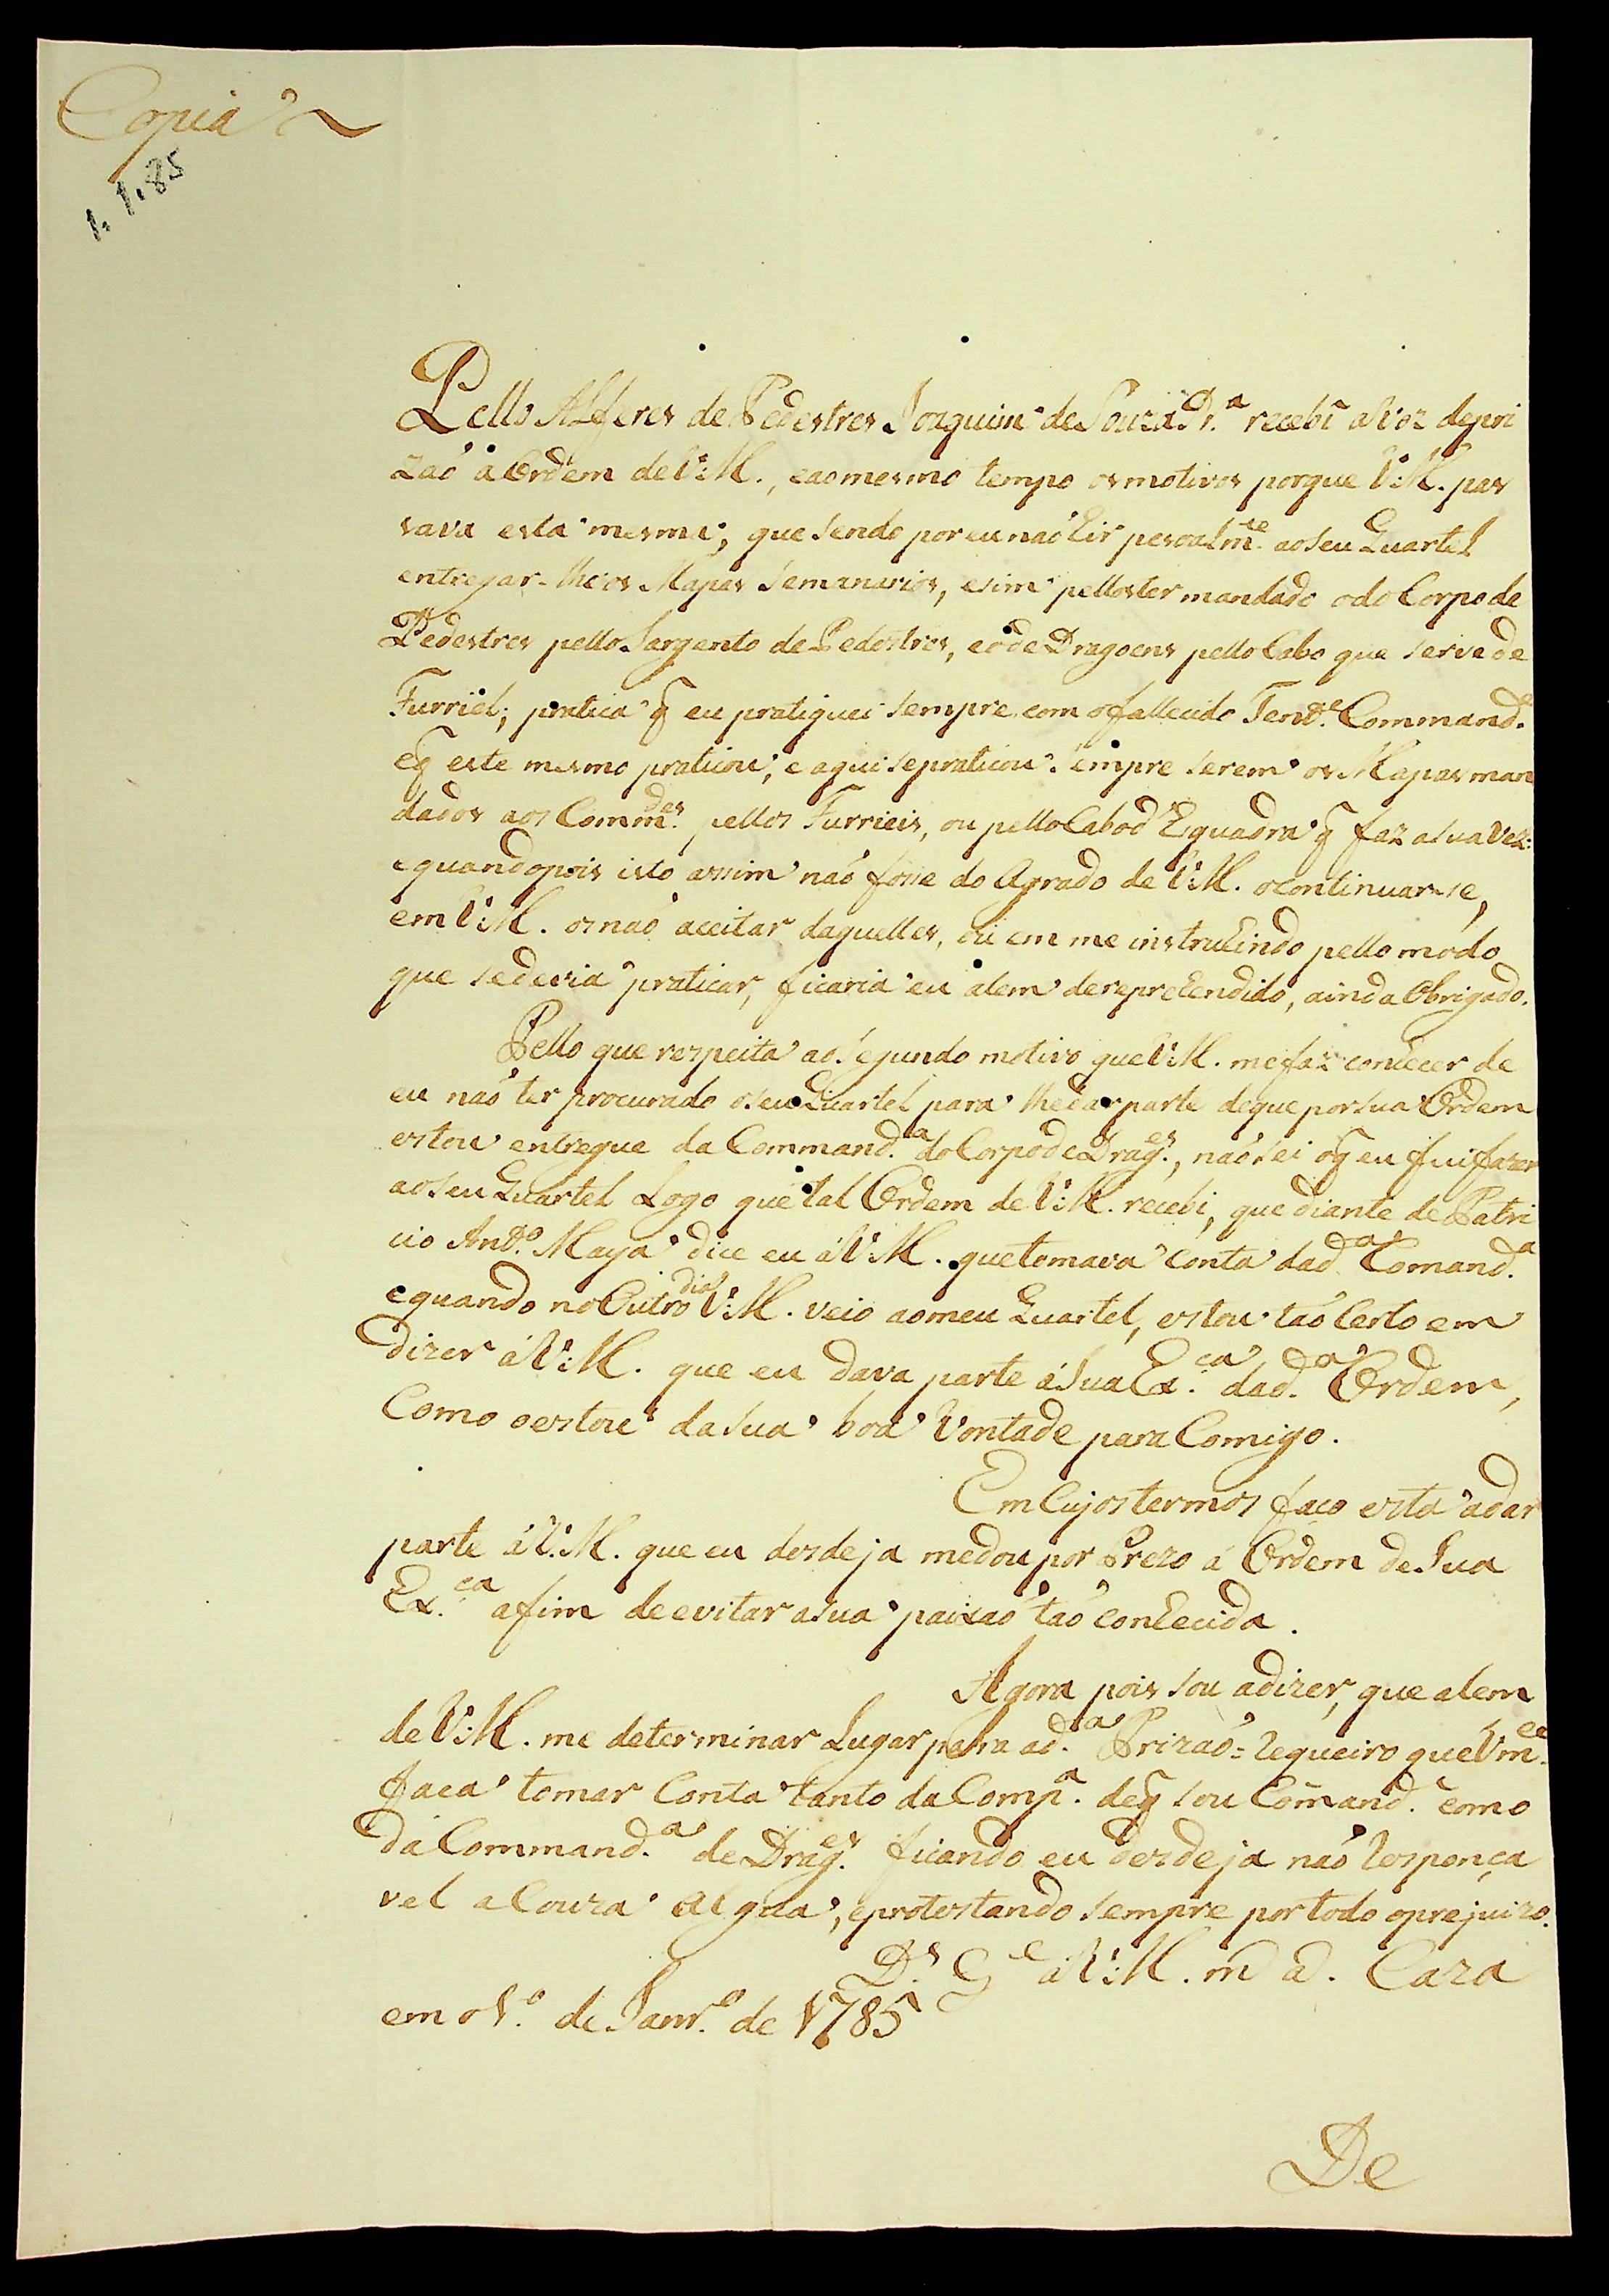 Copia
1.1.85
Pello Alferes de Pedestres Joaquim de Souza Pr.ª recebi a voz de pri
zaõ á Ordem de V.M., e ao mesmo tempo os motivos porque V.M. pas
sava esta mesma; que sendo por eu naõ hir pesoalm.te ao seu Quartel
entregar-lhe os Mapas Semanarios, e sim pellos ter mandado o do Corpo de
Pedestres pello Sargento de Pedestres, e o de Dragoens pello Cabo que serve de
Furriel; pratica q̃ eu pratiquei sempre com o fallecido Ten.te Command.e
e q̃ este mesmo praticou; e aqui se praticou sempre serem os Mapas man
dados aos Comm.des pellos Furrieis, ou pello Cabo d'Esquadra q̃ faz a sua Vez:
e quando pois isto assim naõ fosse do Agrado de V.M. o continuar-se,
em V.M. os naõ aceitar daquelles, ou em me instruhindo pello modo
que se devia praticar, ficaria eu alem de reprehendido, ainda Obrigado.
Pello que respeita ao Segundo motivo que V.M. me faz conhecer de
eu naõ ter procurado o seu Quartel para lhe dar parte de que por sua Ordem
estou entregue da Command.ª do Corpo de Drag.es, naõ sei o q̃ eu fui fazer
ao seu Quartel Logo que tal Ordem de V.M. recebi, que diante de Patri
cio Ant.º Maya dice eu á V.M. que tomava conta da d.ª Comand.ª
e quando no Outro dia V.M. veio ao meu Quartel, estou taõ Certo em
dizer á V.M. que eu dava parte á Sua Ex.ca da d.ª Ordem,
Como o estou da sua boa Vontade para Comigo.
Em Cujos termos faço esta a dar
parte á V.M. que eu desde ja me dou por Prezo á Ordem de Sua
Ex.ca a fim de evitar a sua paixaõ taõ conhecida.
Agora pois sou a dizer, que alem
de V.M. me determinar Lugar para a d.ª Prizaõ = Requeiro que Vm.ce
faca tomar Conta tanto da Comp.ª de q̃ sou Cõmand. como
da Command.ª de Drag.es ficando eu desde ja naõ Responça
vel a Couza Algũa, e protestando sempre por todo o prejuizo.
D.s G.e a V.M. m a. Caza
em o 1.º de Janr.º de 1785
De